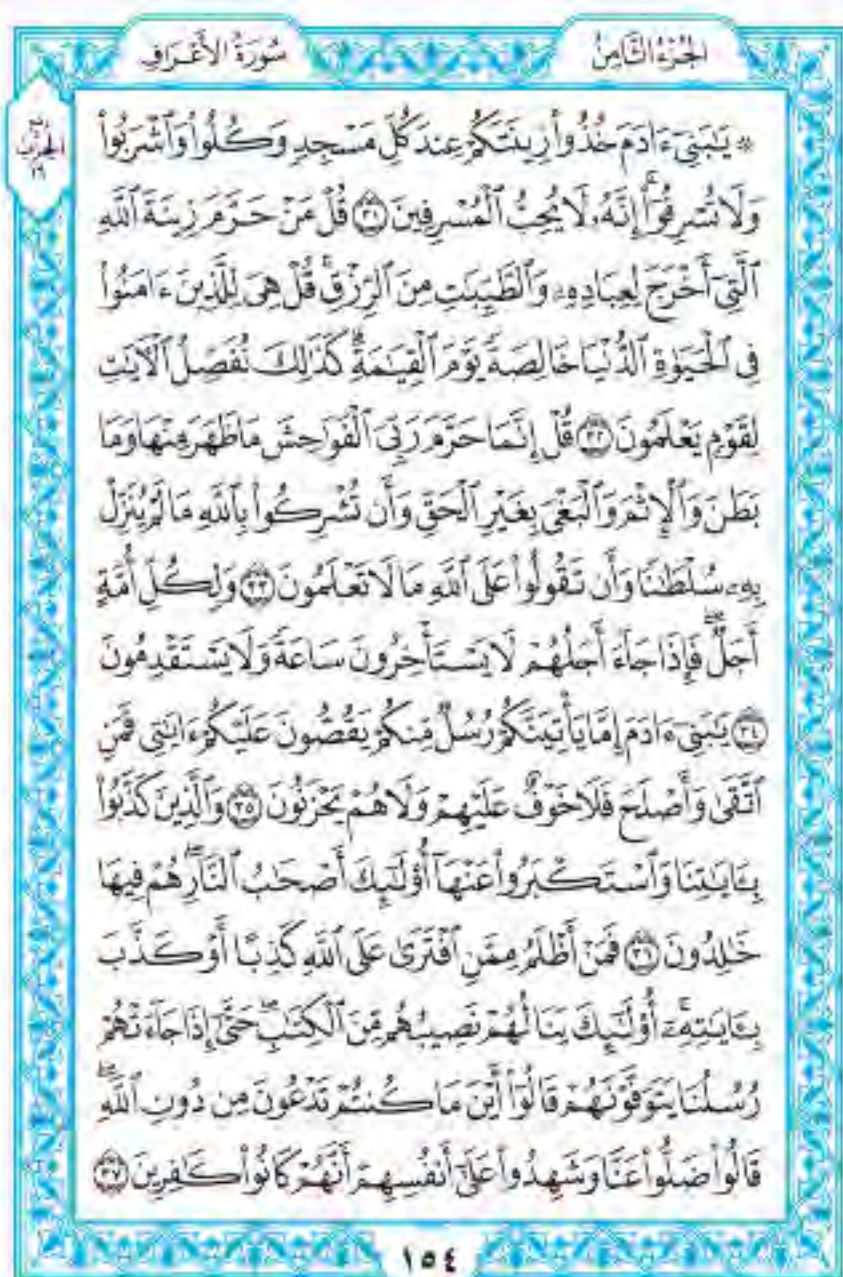 الجُزْءُ الثَّامِنُ
سُورَةُ الأَعْرَافِ
۞ يَٰبَنِىٓ ءَادَمَ خُذُوا۟ زِينَتَكُمْ عِندَ كُلِّ مَسْجِدٍ وَكُلُوا۟ وَٱشْرَبُوا۟
وَلَا تُسْرِفُوٓا۟ ۚ إِنَّهُۥ لَا يُحِبُّ ٱلْمُسْرِفِينَ ٣١ قُلْ مَنْ حَرَّمَ زِينَةَ ٱللَّهِ
ٱلَّتِىٓ أَخْرَجَ لِعِبَادِهِۦ وَٱلطَّيِّبَٰتِ مِنَ ٱلرِّزْقِ ۚ قُلْ هِىَ لِلَّذِينَ ءَامَنُوا۟
فِى ٱلْحَيَوٰةِ ٱلدُّنْيَا خَالِصَةً يَوْمَ ٱلْقِيَٰمَةِ ۗ كَذَٰلِكَ نُفَصِّلُ ٱلْءَايَٰتِ
لِقَوْمٍ يَعْلَمُونَ ٣٢ قُلْ إِنَّمَا حَرَّمَ رَبِّىَ ٱلْفَوَٰحِشَ مَا ظَهَرَ مِنْهَا وَمَا
بَطَنَ وَٱلْإِثْمَ وَٱلْبَغْىَ بِغَيْرِ ٱلْحَقِّ وَأَن تُشْرِكُوا۟ بِٱللَّهِ مَا لَمْ يُنَزِّلْ
بِهِۦ سُلْطَٰنًا وَأَن تَقُولُوا۟ عَلَى ٱللَّهِ مَا لَا تَعْلَمُونَ ٣٣ وَلِكُلِّ أُمَّةٍ
أَجَلٌ ۖ فَإِذَا جَآءَ أَجَلُهُمْ لَا يَسْتَأْخِرُونَ سَاعَةً وَلَا يَسْتَقْدِمُونَ
٣٤ يَٰبَنِىٓ ءَادَمَ إِمَّا يَأْتِيَنَّكُمْ رُسُلٌ مِّنكُمْ يَقُصُّونَ عَلَيْكُمْ ءَايَٰتِى فَمَنِ
ٱتَّقَىٰ وَأَصْلَحَ فَلَا خَوْفٌ عَلَيْهِمْ وَلَا هُمْ يَحْزَنُونَ ٣٥ وَٱلَّذِينَ كَذَّبُوا۟
بِـَٔايَٰتِنَا وَٱسْتَكْبَرُوا۟ عَنْهَآ أُو۟لَٰٓئِكَ أَصْحَٰبُ ٱلنَّارِ ۖ هُمْ فِيهَا
خَٰلِدُونَ ٣٦ فَمَنْ أَظْلَمُ مِمَّنِ ٱفْتَرَىٰ عَلَى ٱللَّهِ كَذِبًا أَوْ كَذَّبَ
بِـَٔايَٰتِهِۦٓ ۚ أُو۟لَٰٓئِكَ يَنَالُهُمْ نَصِيبُهُم مِّنَ ٱلْكِتَٰبِ ۖ حَتَّىٰٓ إِذَا جَآءَتْهُمْ
رُسُلُنَا يَتَوَفَّوْنَهُمْ قَالُوٓا۟ أَيْنَ مَا كُنتُمْ تَدْعُونَ مِن دُونِ ٱللَّهِ ۖ
قَالُوا۟ ضَلُّوا۟ عَنَّا وَشَهِدُوا۟ عَلَىٰٓ أَنفُسِهِمْ أَنَّهُمْ كَانُوا۟ كَٰفِرِينَ ٣٧
١٥٤
الحِزْب
١٦